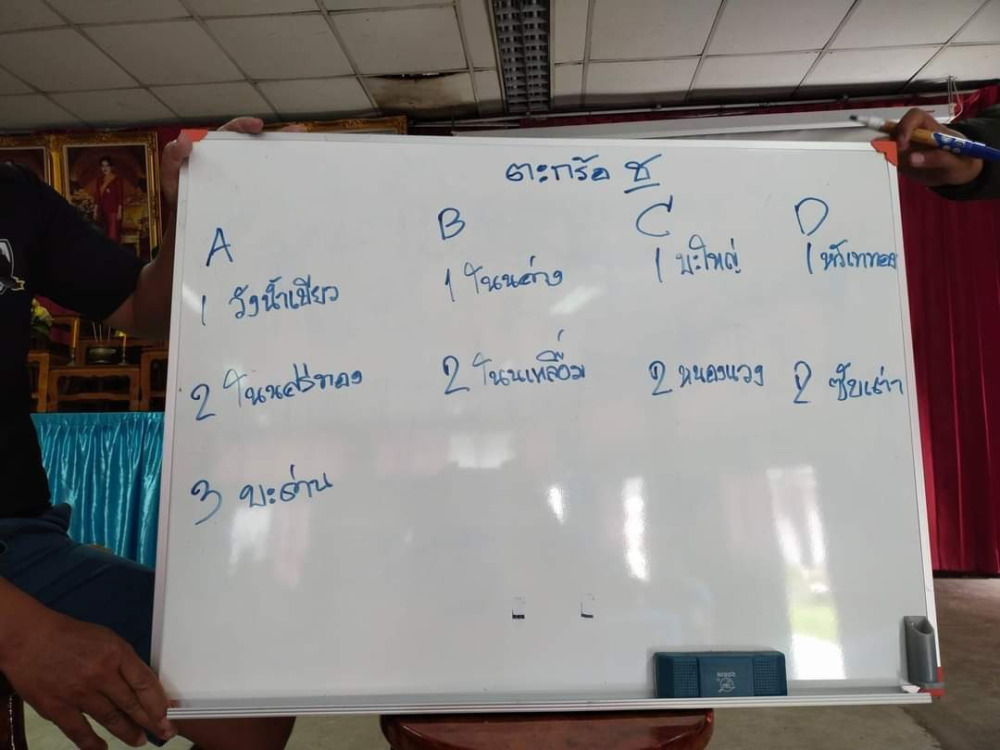 ตะกร้อ ช
A B C D
1 วังน้ำเขียว 1 โนนค่าง 1 มะใหญ่ 1 หัวเททอง
2 โนนศรีทอง 2 โนนเหลื่อม 2 หนองแวง 2 ซับเต่า
3 บะด่าน